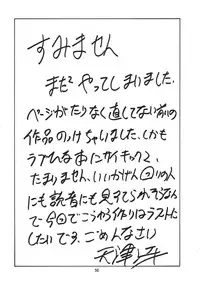 すみません
またやってしまいました.
ページがたりなく直してない前の
作品のっけちゃいました、しかも
ラブひなホにサイキック2、
たまりません、いいかげん回りの人
にも読者にも見すてられそうなん
で今回でこうゆう作りはラストに
したいです、ごめんなさい